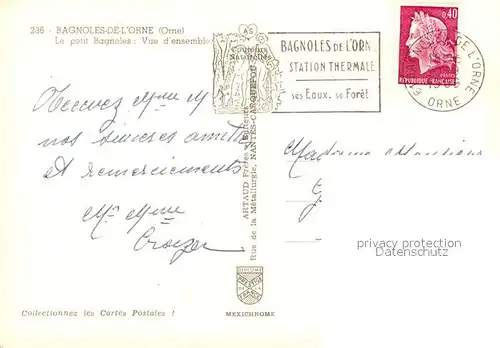 236 - BAGNOLES-DE-L'ORNE (Orne)
Le petit Bagnoles : Vue d'ensemble
AS
Couleurs
Naturelles
BAGNOLES de l'ORN
STATION THERMALE
ses Eaux. sa Forêt
0,40
POSTES
REPUBLIQUE FRANÇAISE
DE L'ORNE
ORNE
Recevez Mme M
nos sincères amitiés
et remerciements
Mr Mme
ARTAUD Frères, Editeurs
Rue de la Métallurgie, NANTES-CARQUEFOU
Madame
privacy protection
watermark
MEXICHROME
Collectionnez les Cartes Postales !